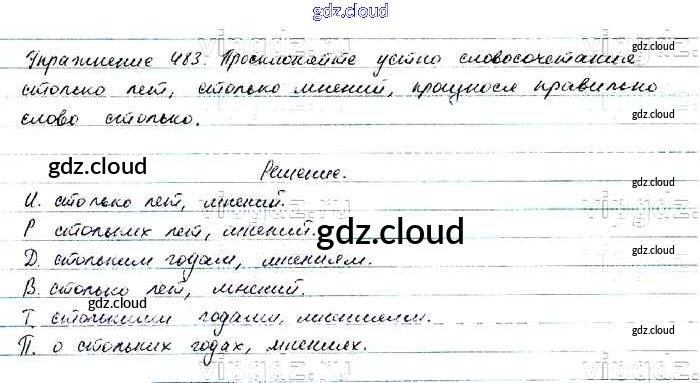 gdz.cloud
gdz.cloud
Упражнение 483. Просклоняйте устно словосочетания
столько лет, столько мнений, произнося правильно
gdz.cloud
слово столько.
gdz.cloud
gdz.cloud
Решение.
gdz.cloud
И. столько лет, мнений.
Р стольких лет, мнений.
gdz.cloud
gdz.cloud
Д. стольким годам, мнениям.
В. столько лет, мнений.
gdz.cloud
Т. столькими годами, мнениями.
gdz.cloud
П. о стольких годах, мнениях.